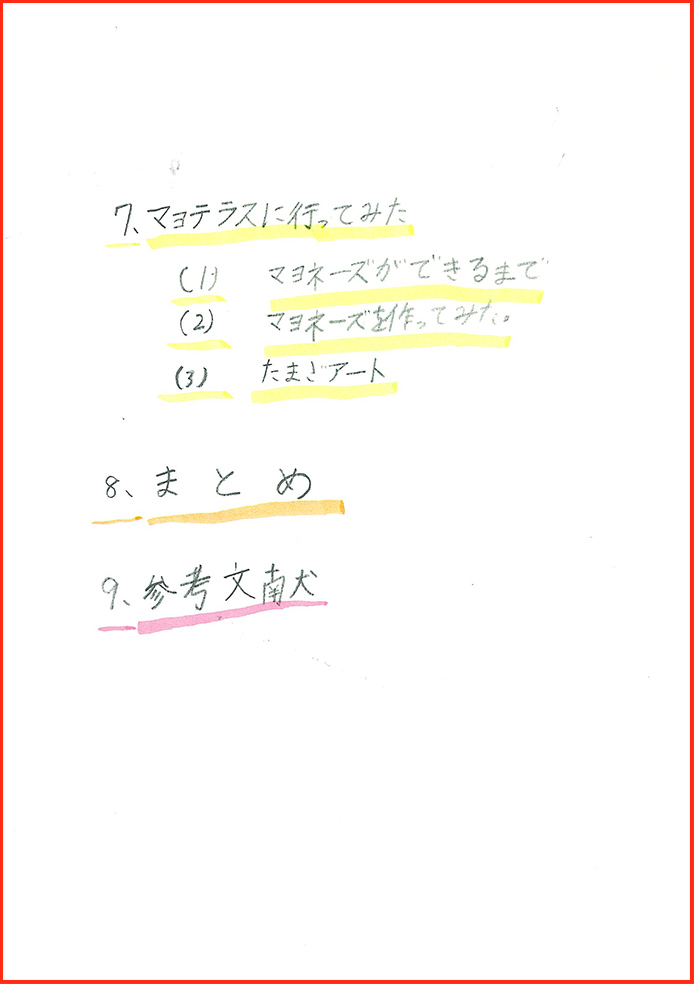 7、マヨテラスに行ってみた
(1) マヨネーズができるまで
(2) マヨネーズを作ってみた。
(3) たまごアート
8、まとめ
9、参考文献